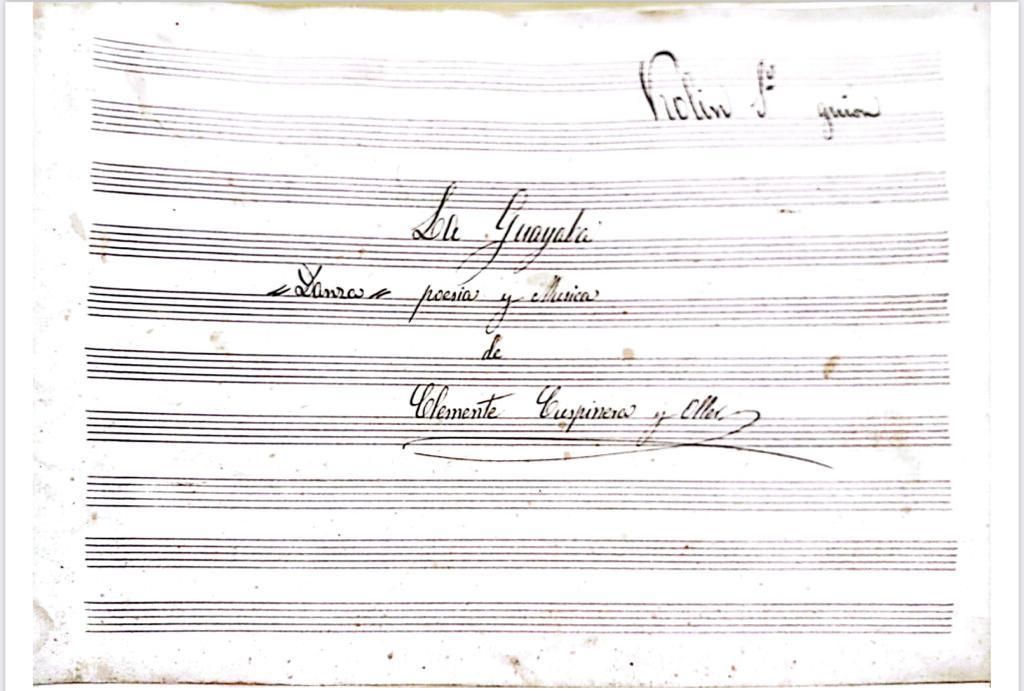 Violin 1º guion
La Guayaba
"Danza" poesia y Musica
de
Clemente Cuspinera y Oller